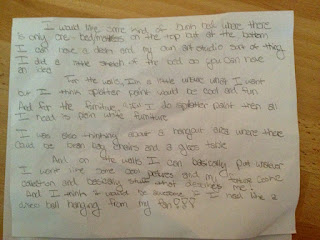 I would like some kind of bunk bed where there
is only one bed/mattress on the top but at the bottom
I can have a desk and my own art studio sort of thing
I did a little sketch of the bed so you can have
an idea
For the walls, I'm a little what I want
but I think splatter paint would be cool and fun
And for the furniture if I do splatter paint then all
I need is plain white furniture
I was also thinking about a hangout area where there
could be bean bag chairs and a glass table
And on the walls I can basically put whatever
I want like some and my
collection and basically stuff what describes me.
And I think it would be awesome if I had like a
disco ball hanging from my fan???